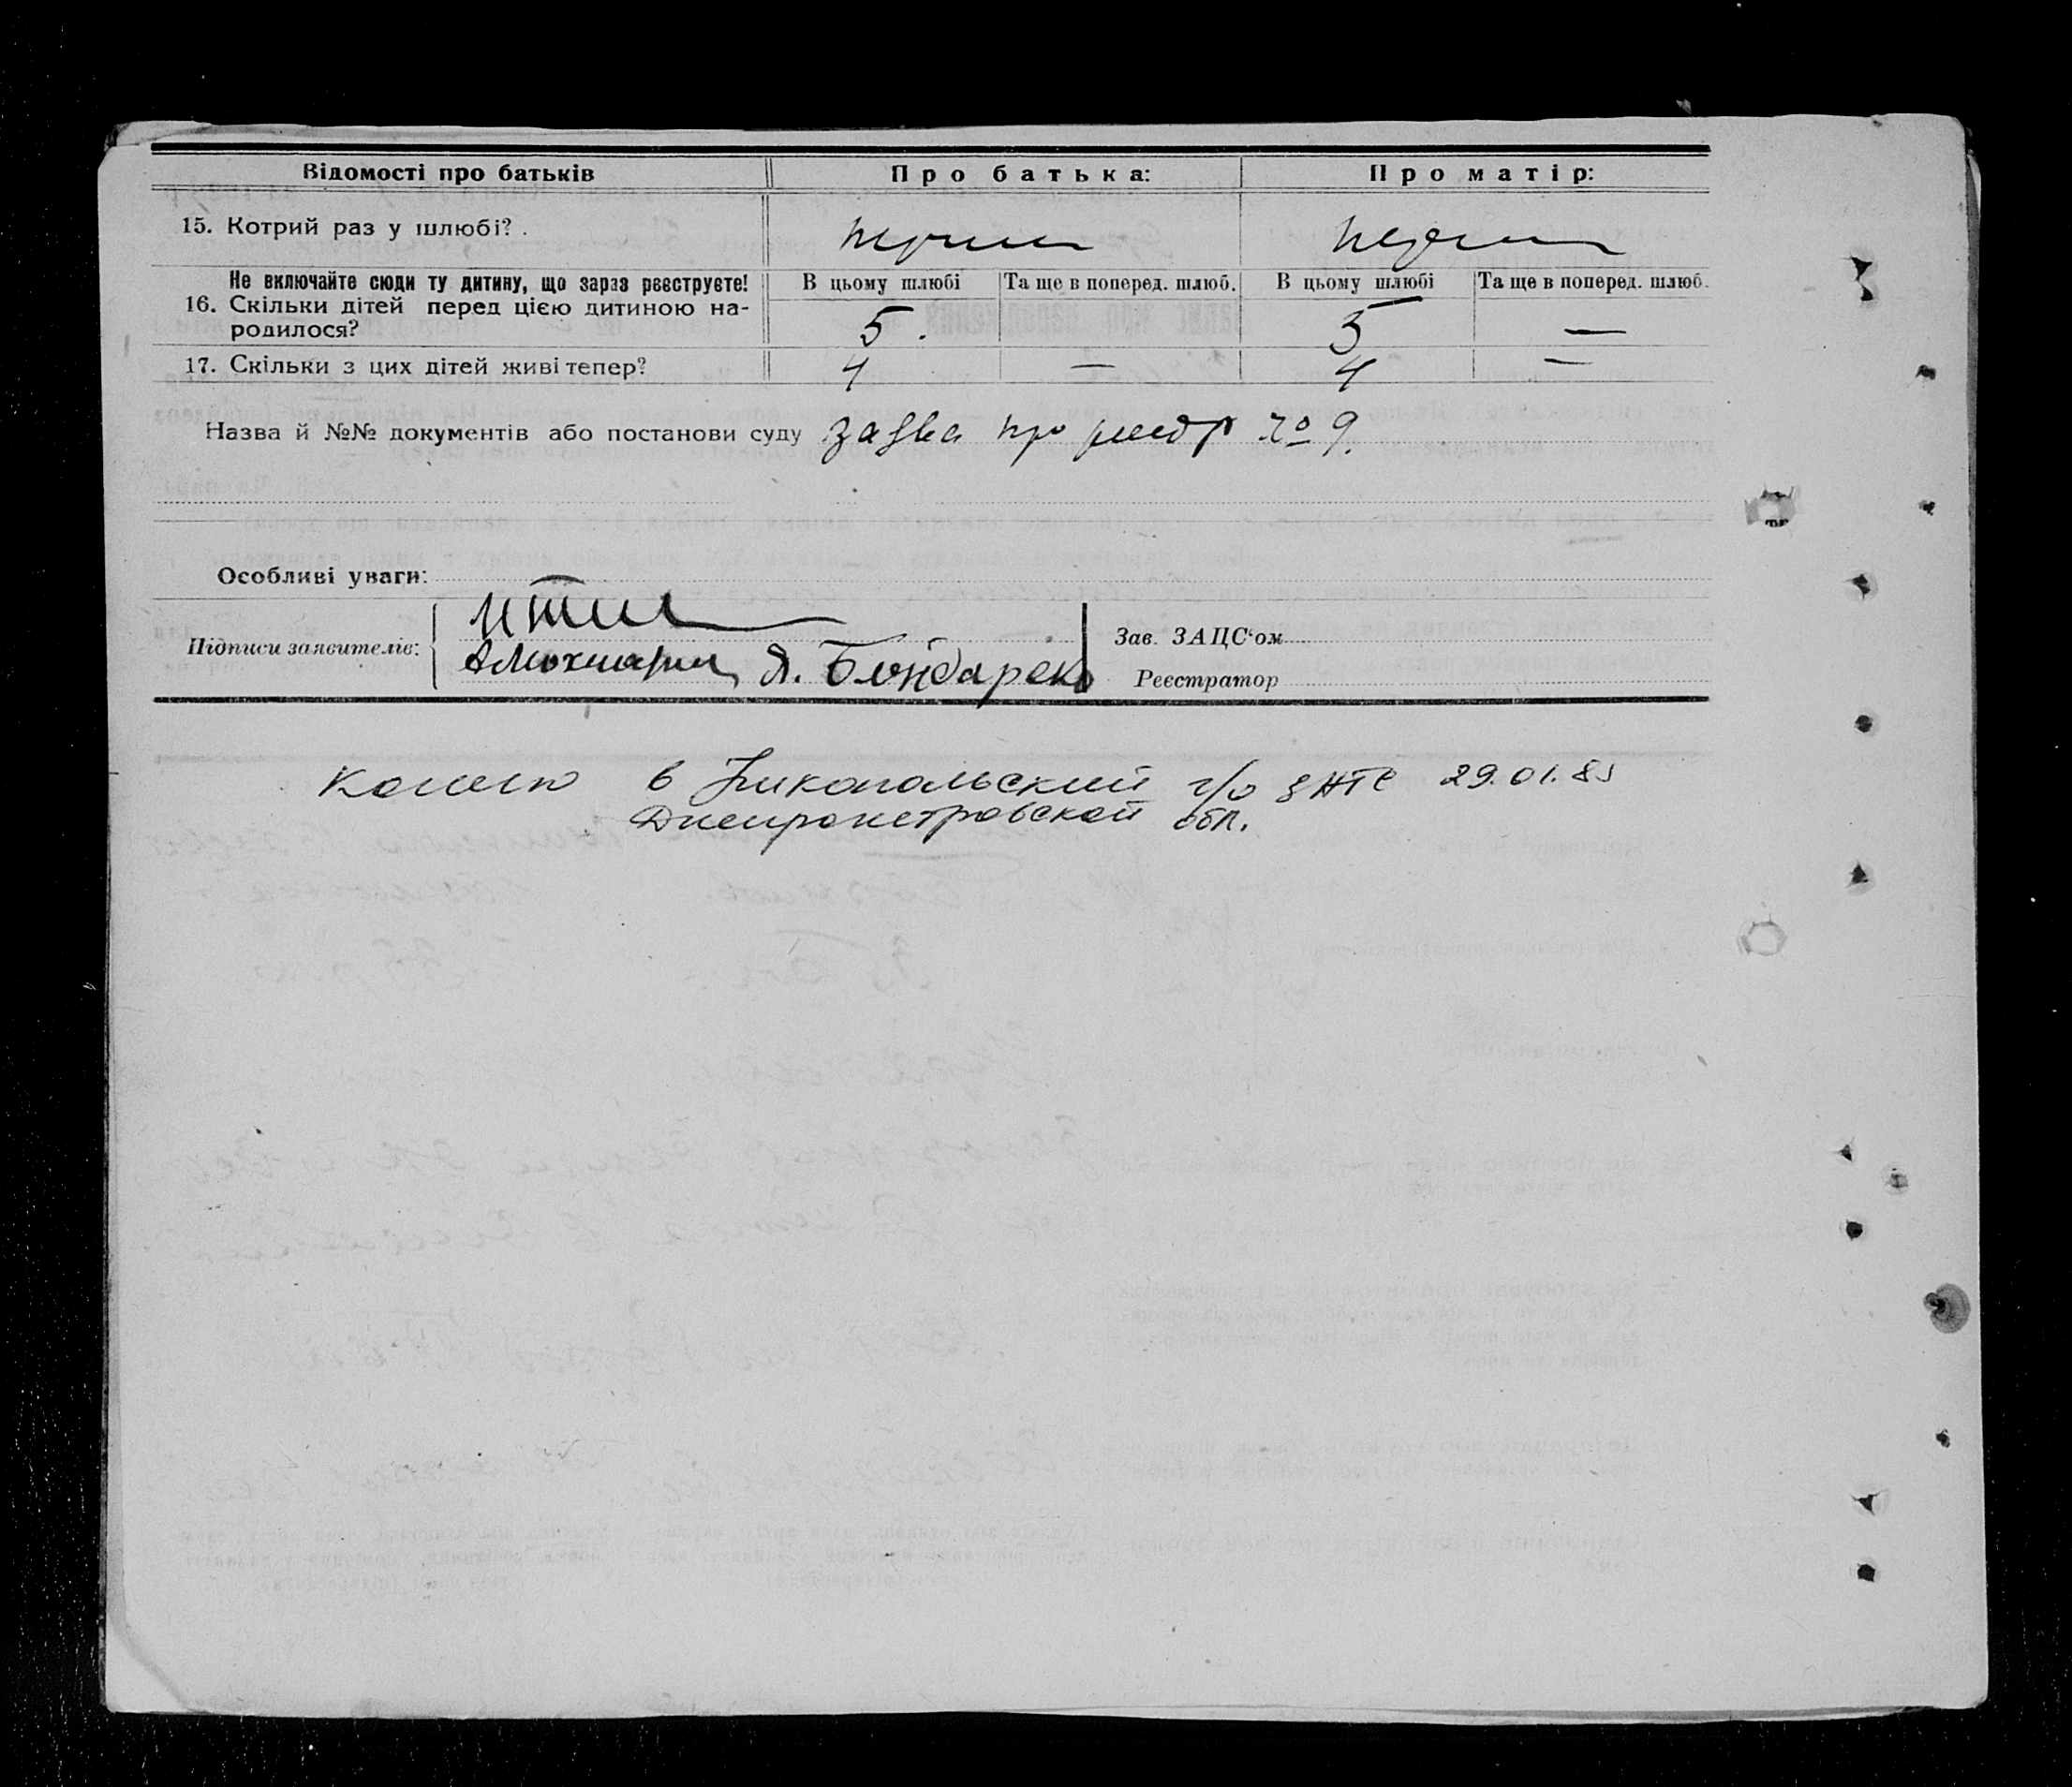 Відомості про батьків Про батька: Про матір:
15. Котрий раз у шлюбі? . перший перший
Не включайте сюди ту дитину, що зараз реєструєте! В цьому шлюбі Та ще в поперед. шлюб. В цьому шлюбі Та ще в поперед. шлюб.
16. Скільки дітей перед цією дитиною на-
родилося? 5. 5 —
17. Скільки з цих дітей живі тепер? 4 — 4 —
Назва й №№ документів або постанови суду заява про реєстр № 9.
Особливі уваги:
Підписи заявителів: Зав. ЗАЦС'ом
Я. Бондаренко Реєстратор
Копию в Никопольский г/о ЗАГС 29.01.85
Днепропетровской обл.